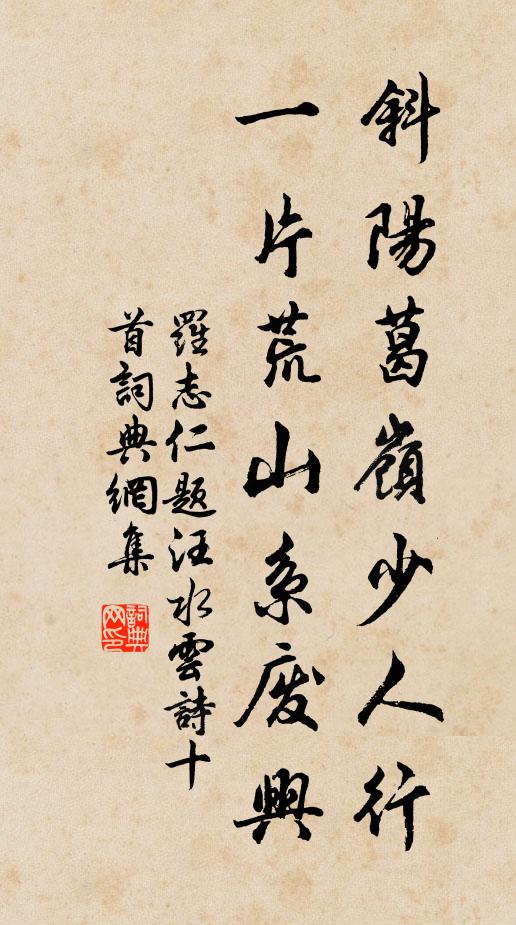 斜陽葛嶺少人行
一片荒山系廢興
羅志仁題汪水雲詩十
首詞典網集
詞典網印